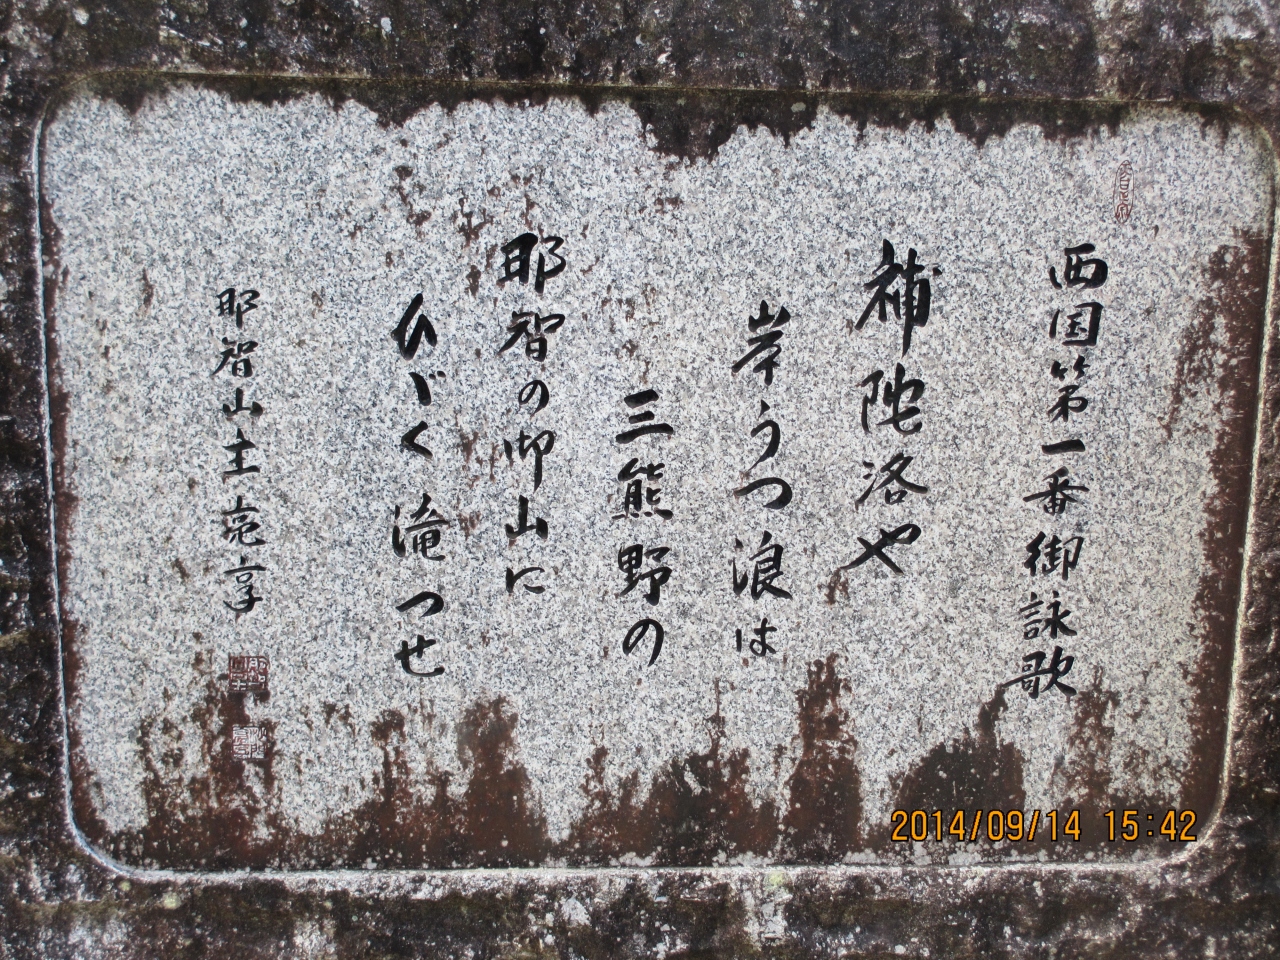 西国第一番御詠歌
補陀洛や
岸うつ浪は
三熊野の
那智の御山に
ひゞく滝つせ
那智山主亮享
2014/09/14 15:42